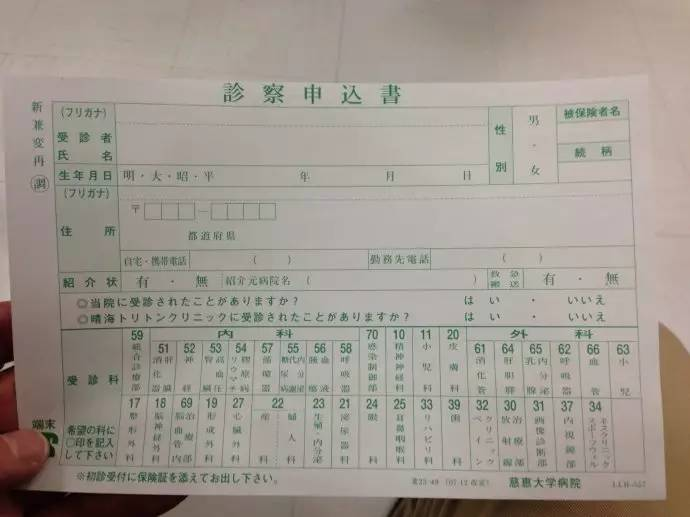 診察申込書
新 兼 変 再 調
(フリガナ)
受診者
氏名
性別
男・女
被保険者名
続柄
生年月日 明・大・昭・平 年 月 日
(フリガナ)
住所
〒
都道府県
自宅・携帯電話 ( )
勤務先電話 ( )
紹介状 有・無 紹介元病院名 ( ) 救急搬送 有・無
◎当院に受診されたことがありますか? はい・いいえ
◎晴海トリトンクリニックに受診されたことがありますか? はい・いいえ
受診科
内科
外科
59 総合診療部
51 消化器 肝臓
52 神経
53 腎臓 高血圧
54 リウマチ 膠原病
57 循環器
55 糖尿 代謝 内分泌
56 腫瘍 血液
58 呼吸器
70 感染制御部
10 精神神経科
11 小児科
20 皮膚科
61 消化管
64 肝胆膵
65 乳腺 内分泌
62 呼吸器
66 血管
63 小児
希望の科に
○印を記入
して下さい
17 整形外科
18 脳神経外科
69 脳血管内 治療部
19 形成外科
27 心臓外科
22 産科 婦人科
23 生殖・内分泌
21 泌尿器科
24 眼科
25 耳鼻咽喉科
33 リハビリ科
39 歯科
32 ペインクリニック
30 放射線 治療部
31 画像診断部
37 内視鏡部
34 スポーツウェルネスクリニック
端末
※初診受付に保険証を添えてお出し下さい。
(07.12改正)
慈恵大学病院